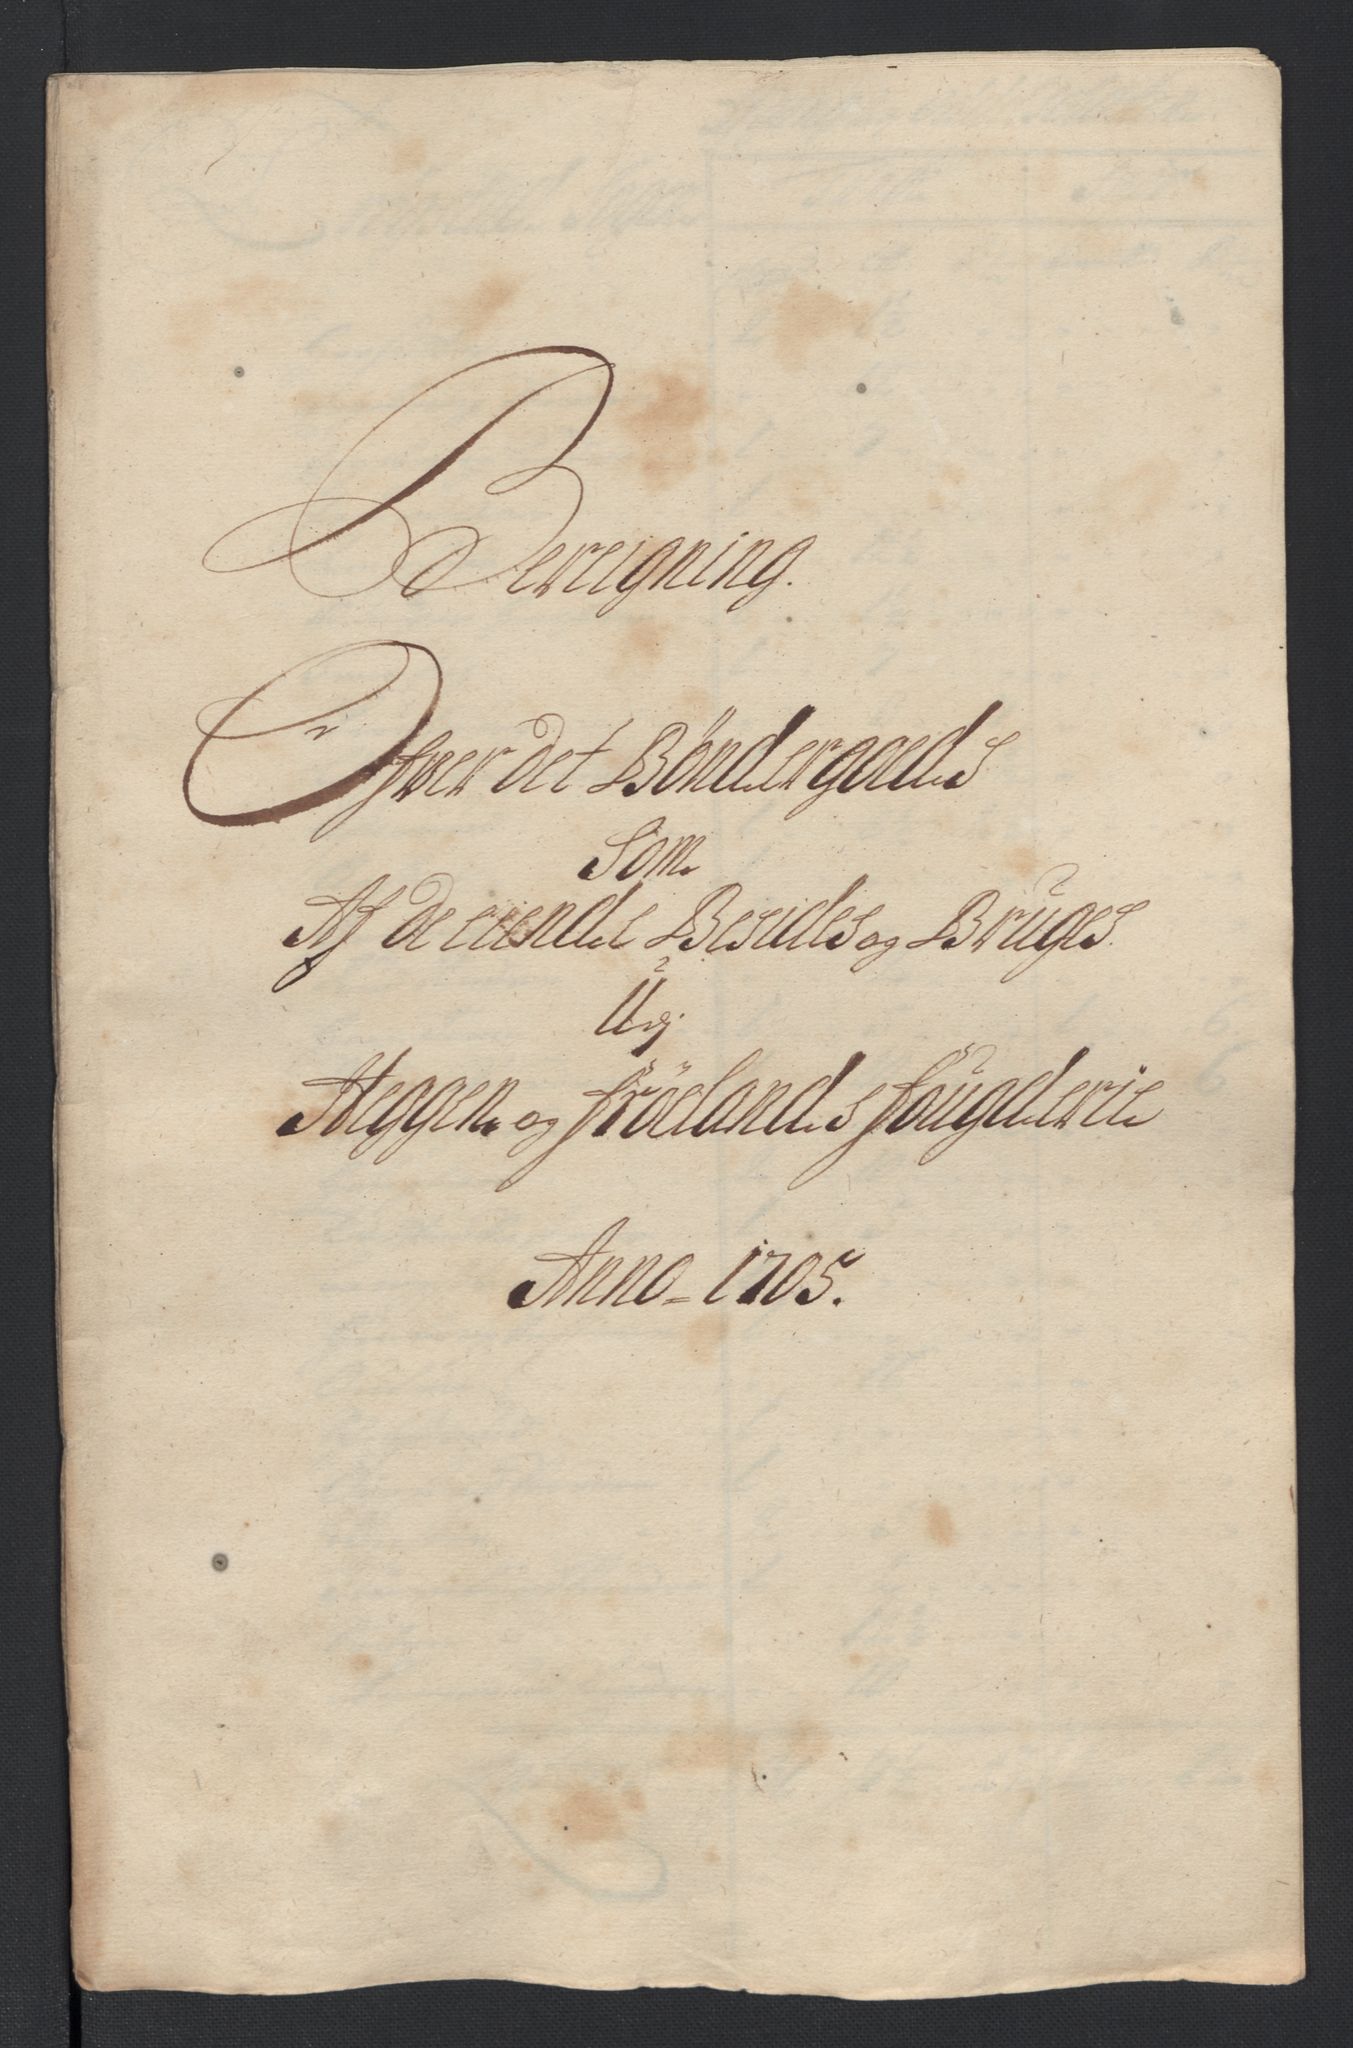 Bereigning.
Ofver det Böndergoeds
Som
Af de eiende Besides og Brüges.
Udj
Heggen og fröelands fougderie
Anno = 1705.